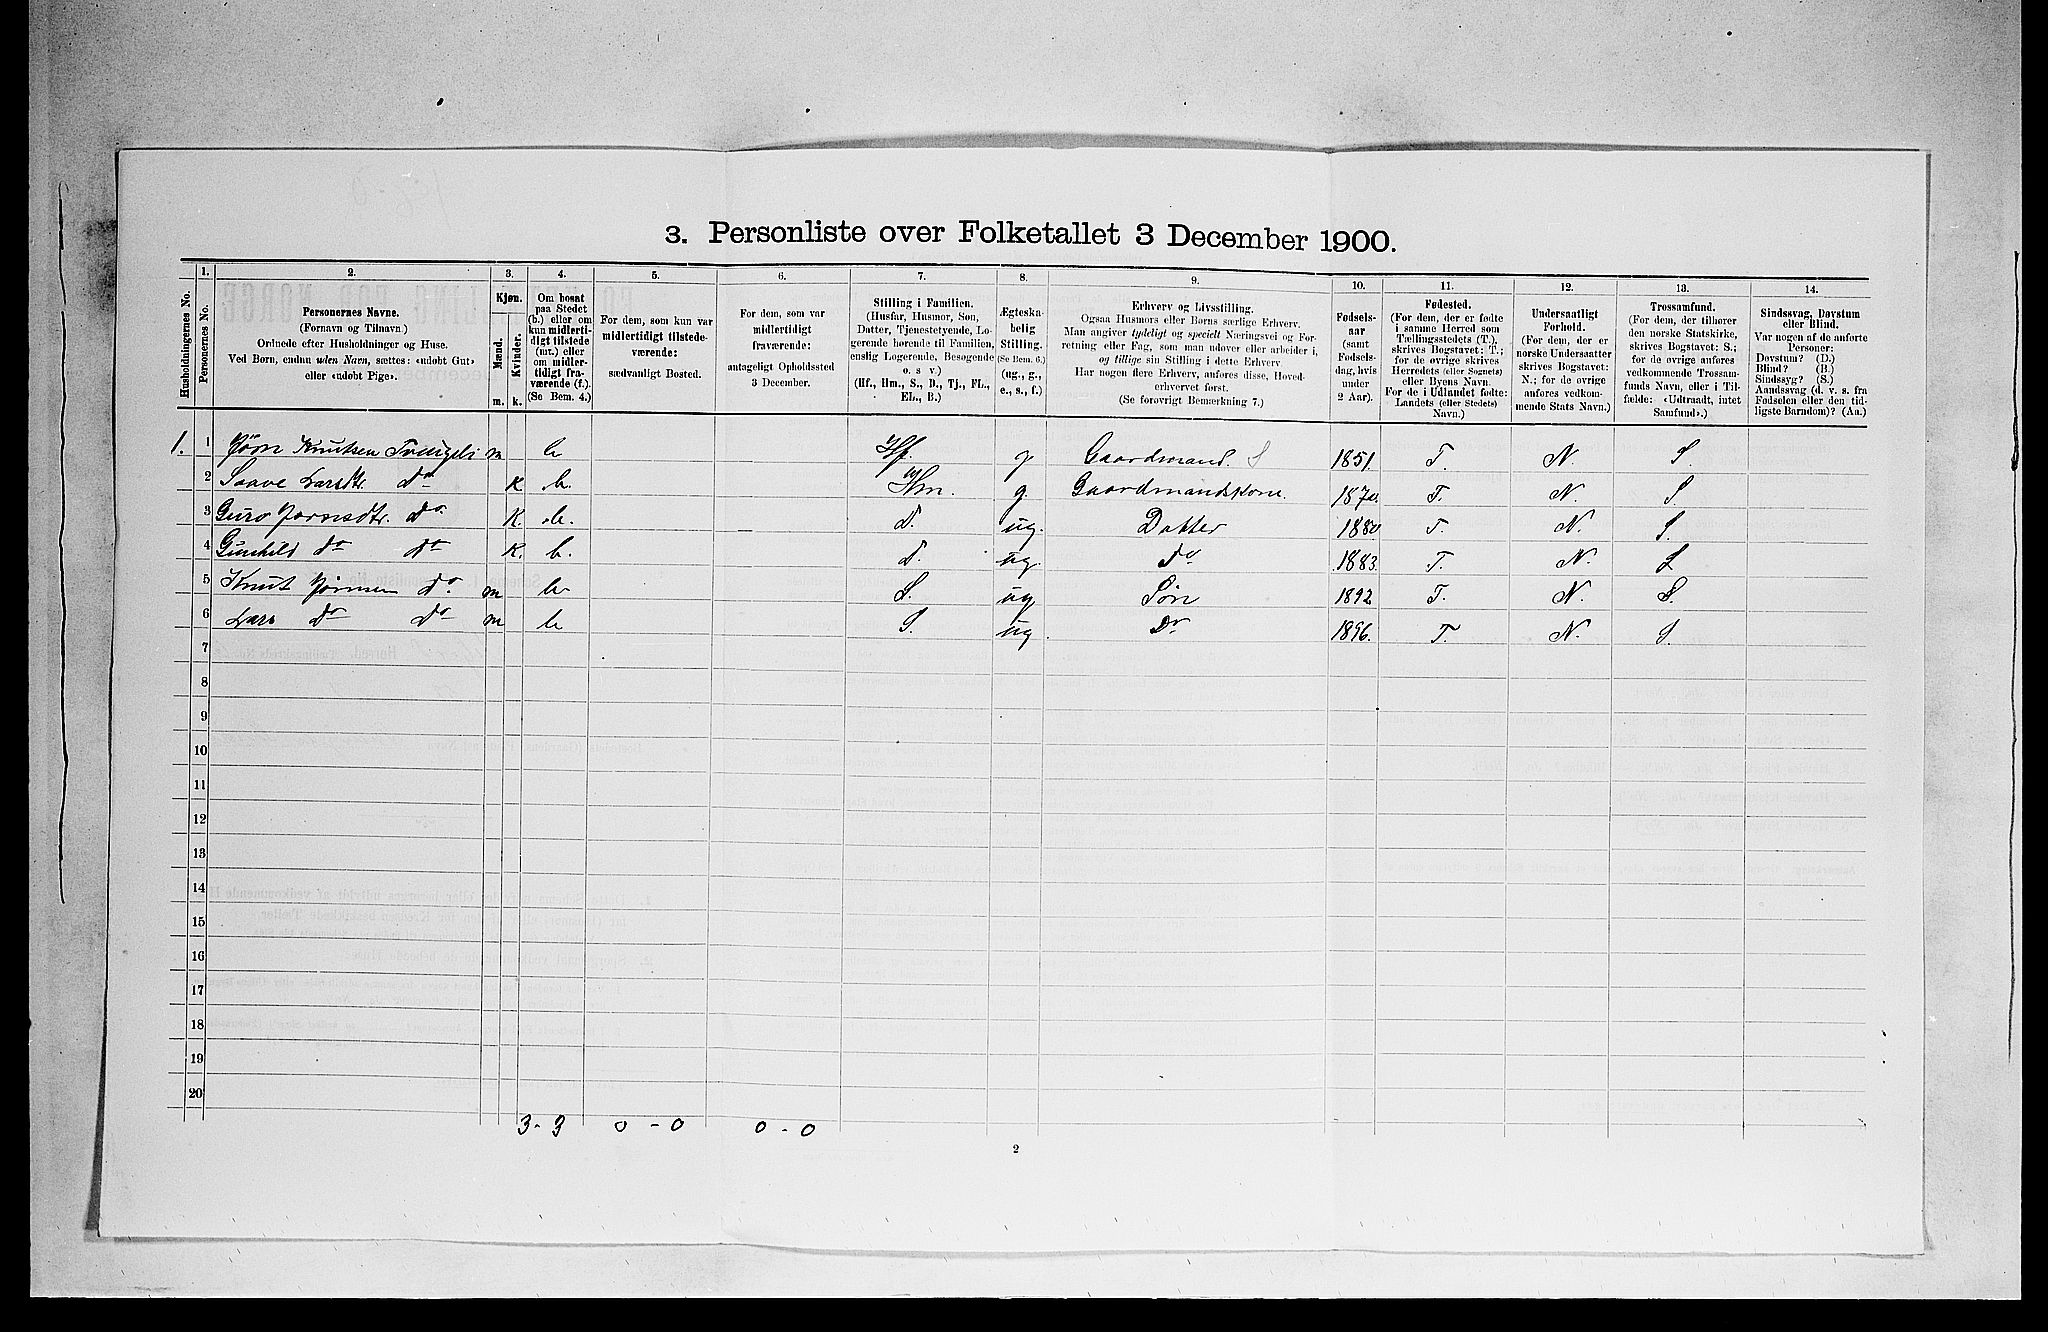 3. Personliste over Folketallet 3 December 1900.
1. 2. 3. 4. 5. 6. 7. 8. 9. 10. 11. 12. 13. 14.
Husholdningernes No.
Personernes No.
Personernes Navne.
(Fornavn og Tilnavn.)
Ordnede efter Husholdninger og Huse.
Ved Børn, endnu uden Navn, sættes: «udøbt Gut»
eller «udøbt Pige».
Kjøn.
Mænd.
Kvinder.
m. k.
Om bosat
paa Stedet
(b.) eller om
kun midlerti-
digt tilstede
(mt.) eller
om midler-
tidigt fra-
værende (f.).
(Se Bem. 4.)
For dem, som kun var
midlertidigt tilstede-
værende:
sædvanligt Bosted.
For dem, som var
midlertidigt
fraværende:
antageligt Opholdssted
3 December.
Stilling i Familien.
(Husfar, Husmor, Søn,
Datter, Tjenestetyende, Lo-
gerende hørende til Familien,
enslig Logerende, Besøgende
o. s v.)
(Hf., Hm., S., D., Tj., FL.,
EL., B.)
Ægteska-
belig
Stilling.
(Se Bem. 6.)
(ug., g.,
e., s., f.)
Erhverv og Livsstilling.
Ogsaa Husmors eller Børns særlige Erhverv.
Man angiver tydeligt og specielt Næringsvei og For-
retning eller Fag, som man udøver eller arbeider i,
og tillige sin Stilling i dette Erhverv.
Har nogen flere Erhverv, anføres disse, Hoved-
erhvervet først.
(Se forøvrigt Bemærkning 7.)
Fødsels-
aar
(samt
Fødsels-
dag, hvis
under
2 Aar).
Fødested.
(For dem, der er fødte
i samme Herred som
Tællingsstedets (T.),
skrives Bogstavet: T.;
for de øvrige skrives
Herredets (eller Sognets)
eller Byens Navn.
For de i Udlandet fødte:
Landets (eller Stedets)
Navn.)
Undersaatligt
Forhold.
(For dem, der er
norske Undersaatter
skrives Bogstavet:
N.; for de øvrige
anføres vedkom-
mende Stats Navn.)
Trossamfund.
(For dem, der tilhører
den norske Statskirke,
skrives Bogstavet: S.;
for de øvrige anføres
vedkommende Trossam-
funds Navn, eller i Til-
fælde: «Udtraadt, intet
Samfund».)
Sindssvag, Døvstum
eller Blind.
Var nogen af de anførte
Personer:
Døvstum? (D.)
Blind? (B.)
Sindssyg? (S.)
Aandssvag (d. v. s. fra
Fødselen eller den tid-
ligste Barndom)? (Aa.)
1. 1 Jörn Knutsen Tveiget m b Hf. g Gaardmand. S 1851. T. N. S.
2 Saave Larsdtr. do K b. Hm. g. Gaardmandskone. 1870. T. N. S
3 Guro Jørnsdtr. do. K. b. D. ug. Datter 1880 T. N. S.
4 Gunhild do do K. b. D. ug. do 1883. T. N. S
5 Knut Jörnsen do. m b S. ug Sön 1892 T. N. S.
6 Lars do do m b S. ug. Do 1896. T. N. S.
7
8
9
10
11
12
13
14
15
16
17
18
19
20
3 - 3 0 - 0 0 - 0
2